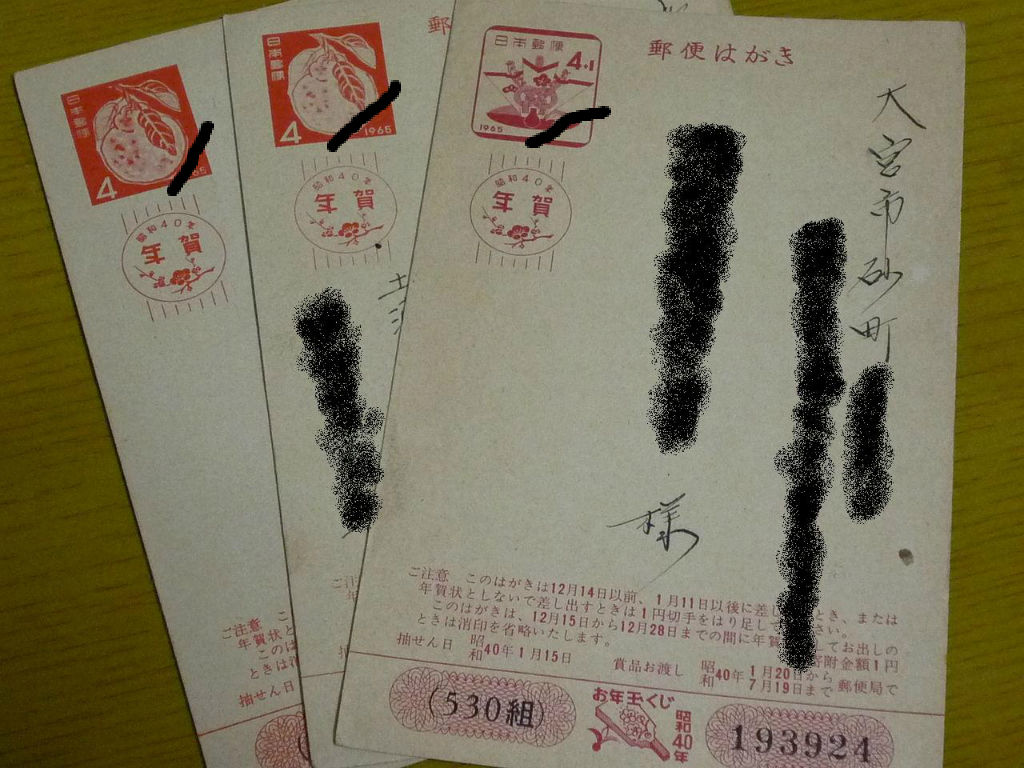 日本郵便
4
65
昭和40年
年賀
ご注意
年賀状と
このは
ときは消
抽せん日
日本郵便
4
1965
昭和40年
年賀
郵
日本郵便
4+1
1965
昭和40年
年賀
郵便はがき
大宮市砂町
様
ご注意 このはがきは12月14日以前、1月11日以後に差し とき、または
年賀状としないで差し出すときは1円切手をはり足して さい。
このはがきは、12月15日から12月28日までの間に年賀 してお出しの
ときは消印を省略いたします。 寄附金額1円
抽せん日 昭和40年1月15日 賞品お渡し 昭和40年 1月20日から 7月19日まで 郵便局で
(530組)
お年玉くじ
昭和40年
193924